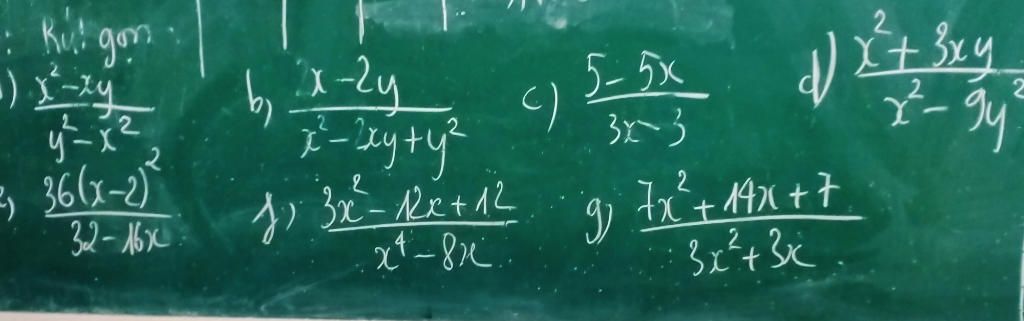 : Rút gọn
) \frac{x^2-xy}{y^2-x^2} b, \frac{x-2y}{x^2-2xy+y^2} c) \frac{5-5x}{3x-3} d) \frac{x^2+3xy}{x^2-9y^2}
, \frac{36(x-2)^2}{32-16x} f, \frac{3x^2-12x+12}{x^4-8x} g) \frac{7x^2+14x+7}{3x^2+3x}